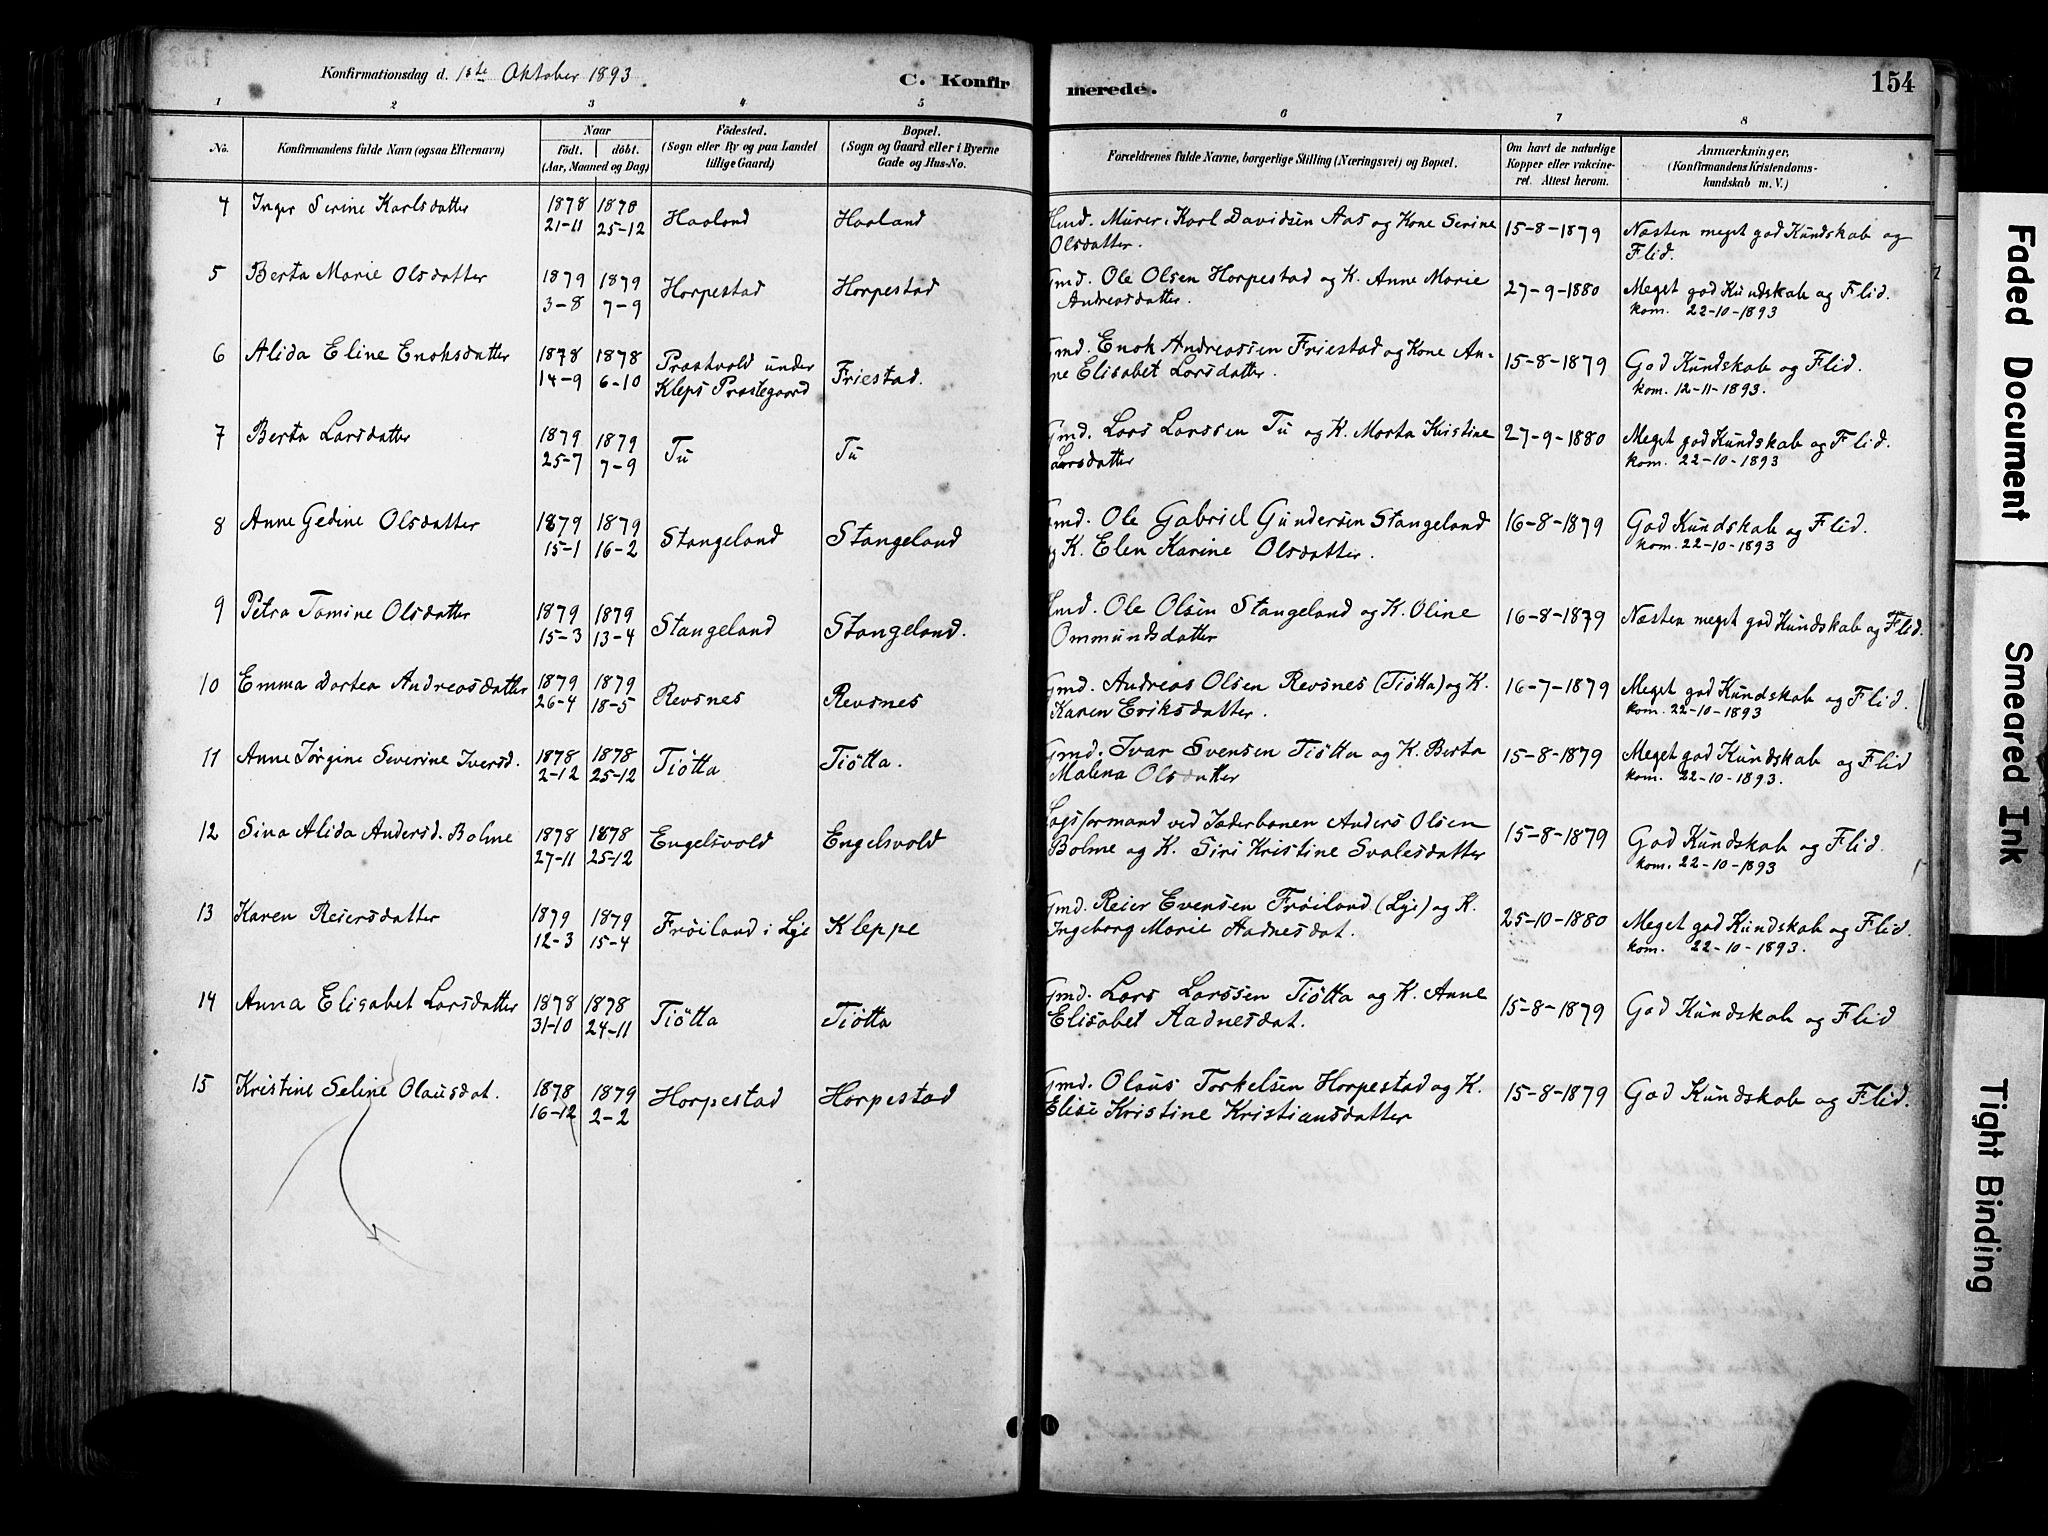 Konfirmationsdag d. 1ste Oktober 1893
C. Konfirmerede.
154
1 2 3 4 5 6 7 8
No.
Konfirmandens fulde Navn (ogsaa Efternavn)
Naar
födt. | döbt.
(Aar, Maaned og Dag)
Födested.
(Sogn eller By og paa Landet
tillige Gaard.)
Bopæl.
(Sogn og Gaard eller i Byerne
Gade og Hus-No.
Forældrenes fulde Navne, borgerlige Stilling (Næringsvei) og Bopæl.
Om havt de naturlige
Kopper eller vakcine-
ret. Attest herom.
Anmærkninger,
(Konfirmandens Kristendoms-
kundskab m. V.)
4 Inger Serine Karlsdatter 1878 1878 Haaland Haaland Hmd. Murer, Karl Davidsen Aas og Kone Serine 15-8-1879 Næsten meget god Kundskab og
21-11 25-12 Olsdatter. Flid.
5 Berta Marie Olsdatter 1879 1879 Horpestad Horpestad Gmd. Ole Olsen Horpestad og K. Anne Marie 27-9-1880 Meget god Kundskab og Flid.
3-8 7-9 Andreasdatter. kom. 22-10-1893
6 Alida Eline Enoksdatter 1878 1878 Prastvold under Friestad. Gmd. Enok Andreassen Friestad og Kone An- 15-8-1879 God Kundskab og Flid.
14-9 6-10 Kleps Prastegaard ne Elisabet Larsdatter. kom. 12-11-1893.
7 Berta Larsdatter 1879 1879 Tu Tu Gmd. Lars Larssen Tu og K. Marta Kristine 27-9-1880 Meget god Kundskab og Flid.
25-7 7-9 Larsdatter kom. 22-10-1893
8 Anne Gedine Olsdatter 1879 1879 Stangeland Stangeland Gmd. Ole Gabriel Gundersen Stangeland 16-8-1879 God Kundskab og Flid.
15-1 16-2 og K. Elen Karine Olsdatter. kom. 22-10-1893
9 Petra Tomine Olsdatter 1879 1879 Stangeland Stangeland. Hmd. Ole Olsen Stangeland og K. Oline 16-8-1879 Næsten meget god Kundskab og Flid.
15-3 13-4 Ommundsdatter
10 Emma Dortea Andreasdatter 1879 1879 Revsnes Revsnes Gmd. Andreas Olsen Revsnes (Tiötta) og K. 16-7-1879 Meget god Kundskab og Flid.
26-4 18-5 Karen Eriksdatter. kom. 22-10-1893
11 Anne Jörgine Severine Iversd. 1878 1878 Tiötta Tiötta. Gmd. Ivar Svensen Tiötta og K. Berta 15-8-1879 Meget god Kundskab og Flid
2-12 25-12 Malena Olsdatter kom. 22-10-1893.
12 Sina Alida Andersd. Bolme 1878 1878 Engelsvold Engelsvold Lagsformand ved Jaderbanen Anders Olsen 15-8-1879 God Kundskab og Flid.
27-11 25-12 Bolme og K. Siri Kristine Svalesdatter kom. 22-10-1893
13 Karen Reiersdatter 1879 1879 Fröiland i Lye Kleppe Gmd. Reier Evensen Fröiland (Lye) og K. 25-10-1880 Meget god Kundskab og Flid.
12-3 15-4 Ingeborg Marie Aadnesdat. kom. 22-10-1893.
14 Anna Elisabet Larsdatter 1878 1878 Tiötta Tiötta Gmd. Lars Larssen Tiötta og K. Anne 15-8-1879 God Kundskab og Flid
31-10 24-11 Elisabet Aadnesdat.
15 Kristine Seline Olausdat. 1878 1879 Horpestad Horpestad Gmd. Olaus Torkelsen Horpestad og K. 15-8-1879 God Kundskab og Flid.
16-12 2-2 Elise Kristine Kristiansdatter
Faded Document
Smeared Ink
Tight Binding